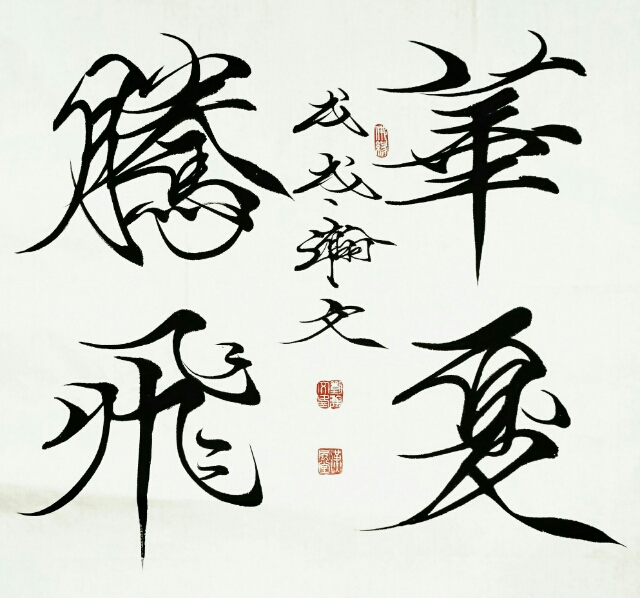 華夏
騰飛
戊戌瀚文